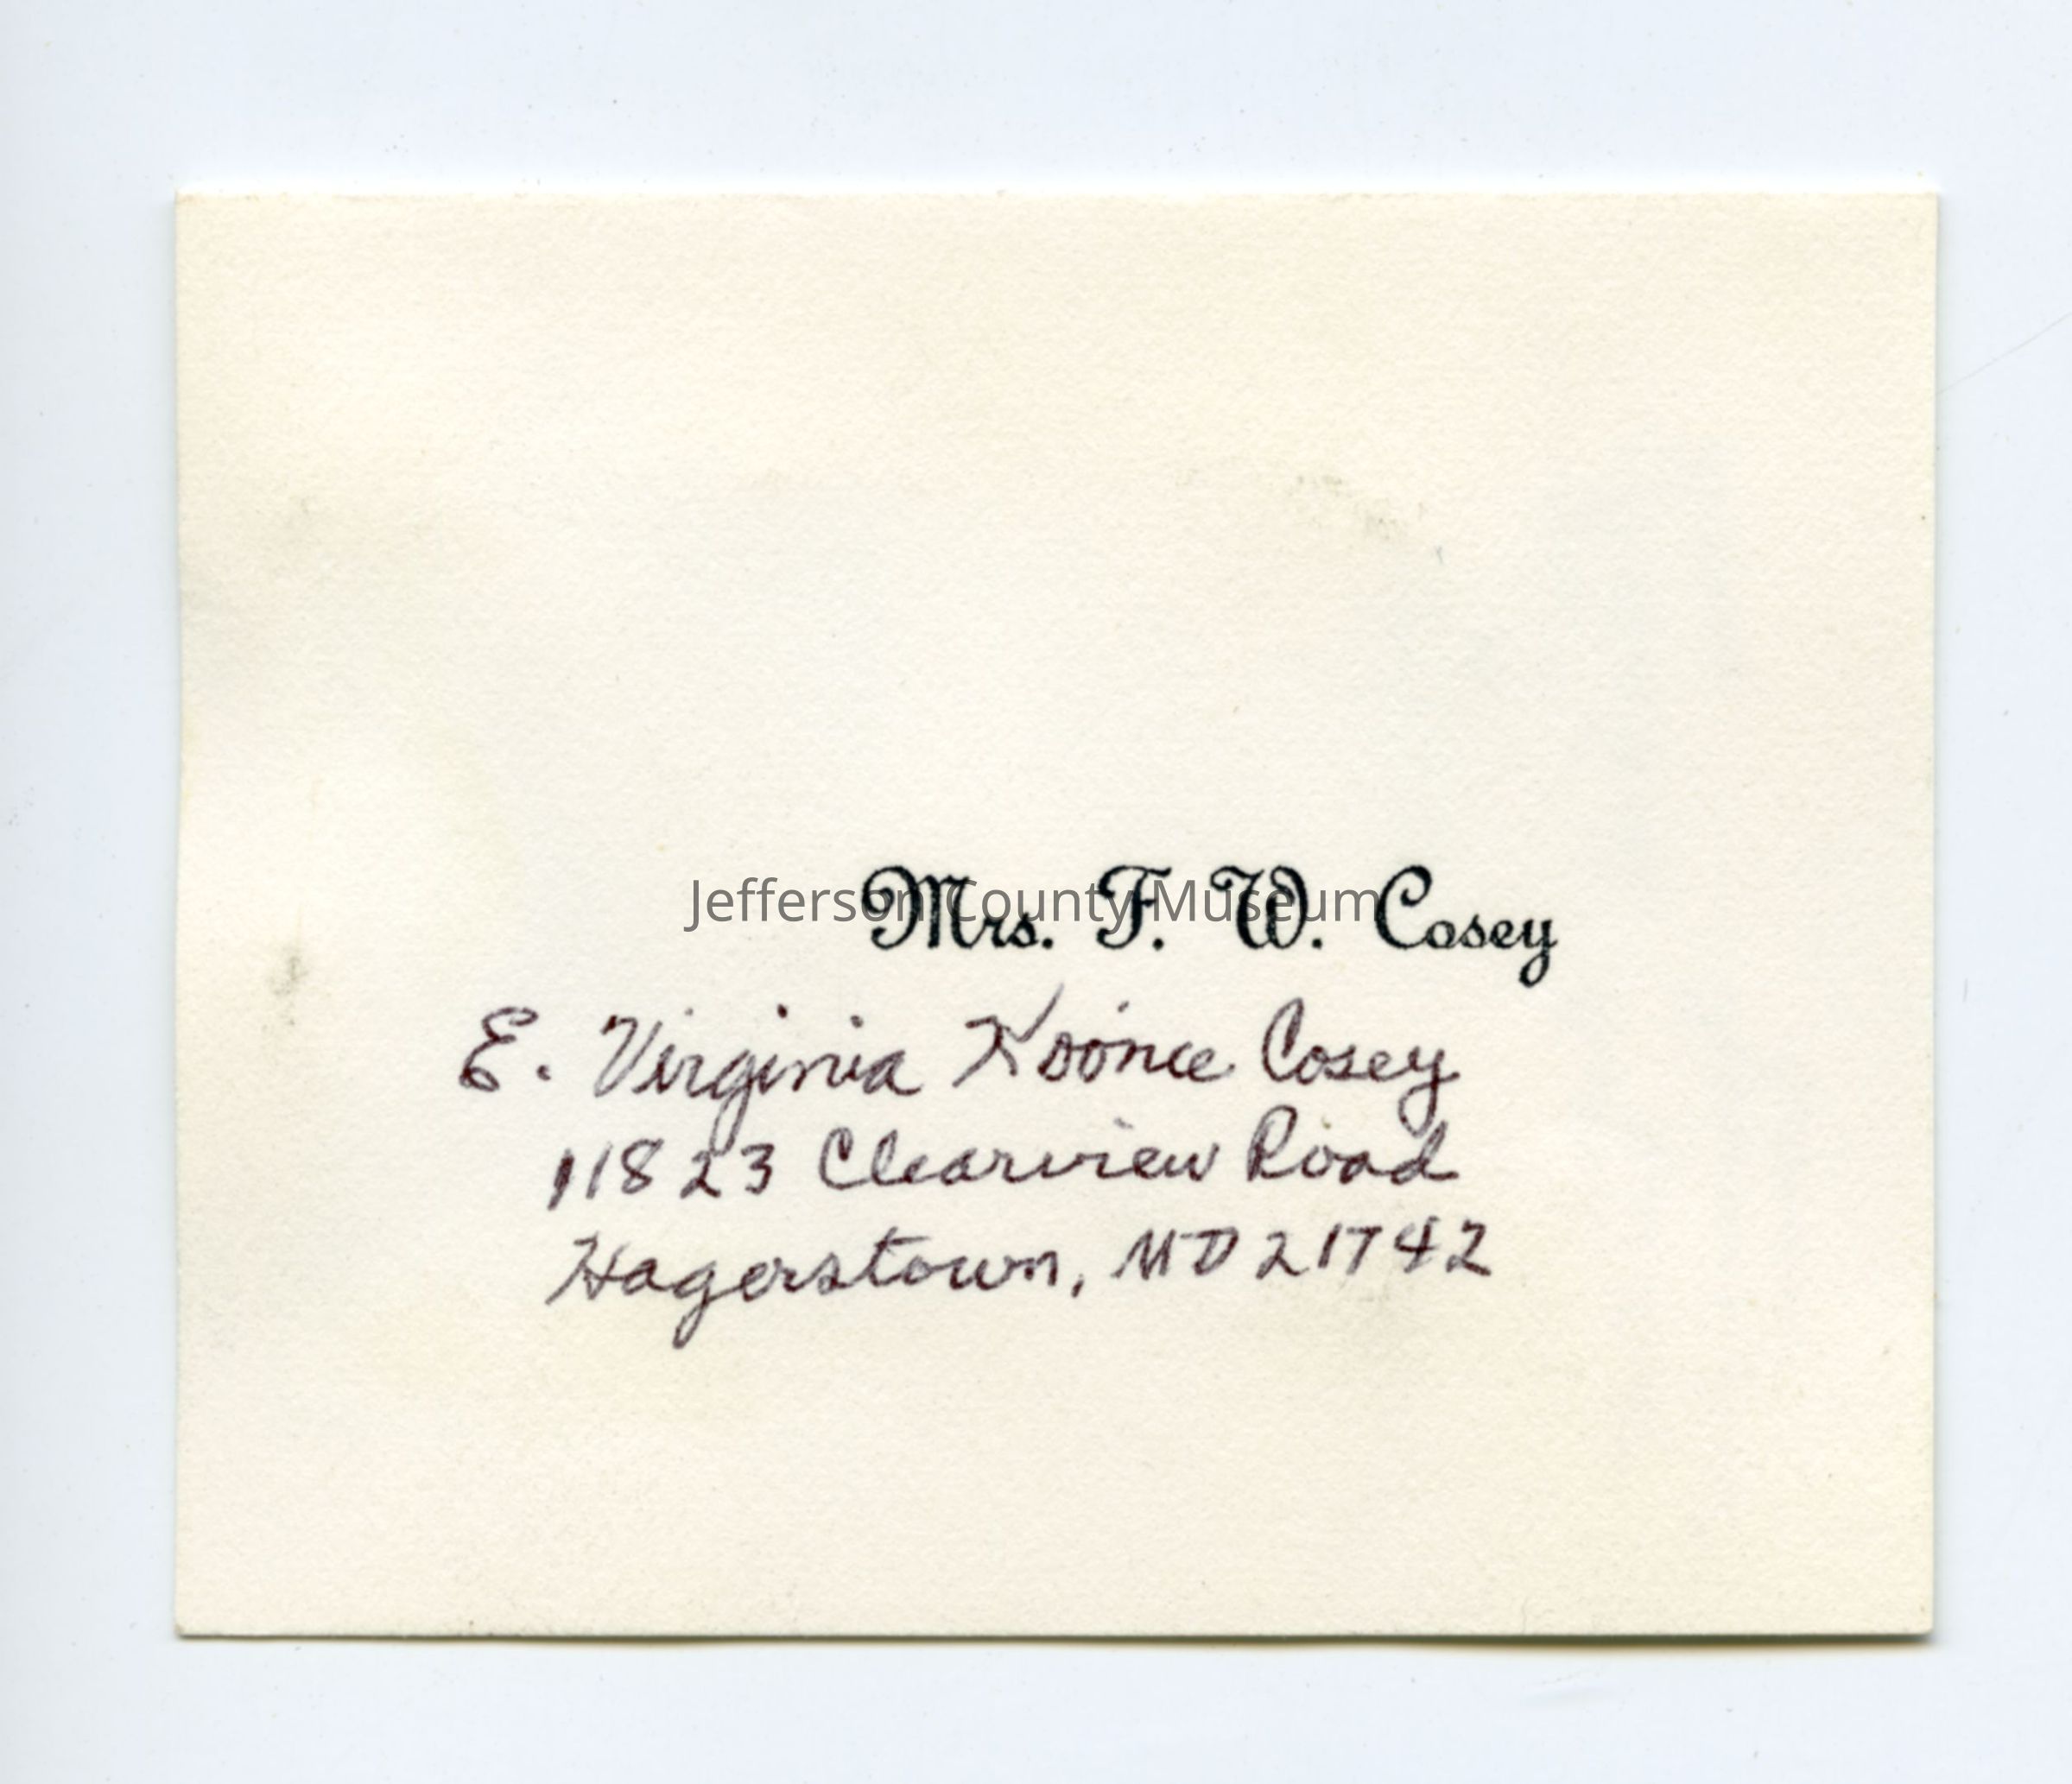 Jefferson County Museum
Mrs. F. W. Cosey
E. Virginia Koonce Cosey
11823 Clearview Road
Hagerstown, MD 21742